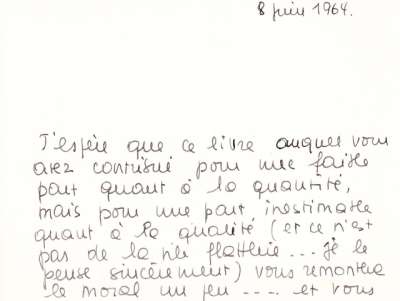 8 juin 1964.
J'espère que ce livre auquel vous
avez contribué pour une faible
part quant à la quantité,
mais pour une part, inestimable
quant à la qualité (et ce n'est
pas de la vile flatterie... je le
pense sincèrement) vous remontera
le moral un peu .... et vous